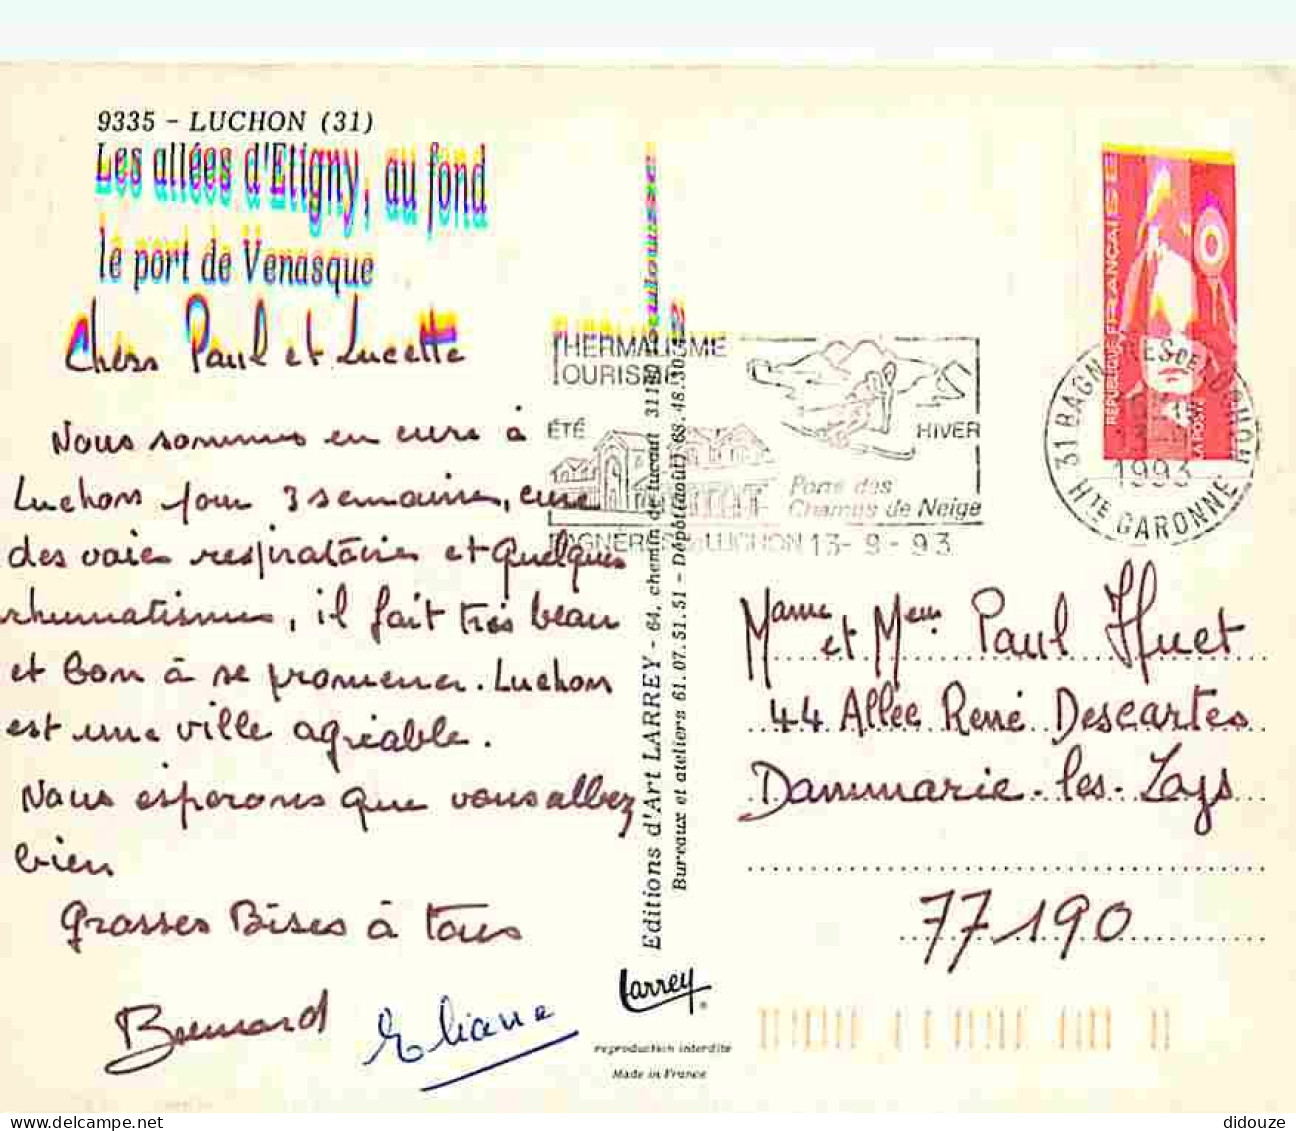 9335 - LUCHON (31)
Les allées d'Etigny, au fond
le port de Venasque
Chers Paul et Lucette
Nous sommes en cure à
Luchon pour 3 semaines, cure
des voies respiratoires et quelques
rhumatismes, il fait très beau
et bon à se promener. Luchon
est une ville agréable.
Nous espérons que vous allez
bien
Grosses Bises à tous
Bernard Eliane
Editions d'Art LARREY - 64, chemin de 31
Bureaux et ateliers 61.07.51.51 - Dépôt (août) 68.48.30
Larrey
reproduction interdite
Made in France
THERMALISME
TOURISME
ÉTÉ
HIVER
Porte des
Champs de Neige
BAGNÈRES de LUCHON 13-9-93
REPUBLIQUE FRANÇAISE
LA POSTE
31 BAGNERES DE LUCHON
1993
HTE GARONNE
Mame et Meur Paul Huet
44 Allée René Descartes
Dammarie-les-Lys
77190
delcampe.net
didouze